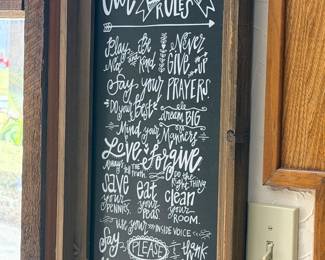 Our
RULES
Play Be Never
Nice and Kind GIVE UP
Say your PRAYERS
Do your Best dream BIG
Mind your Manners
Love & Forgive
always tell the truth. Do the
Right THING
save eat clean
your your your
PENNIES. PEAS. ROOM.
Use your INSIDE VOICE
Say PLEASE think